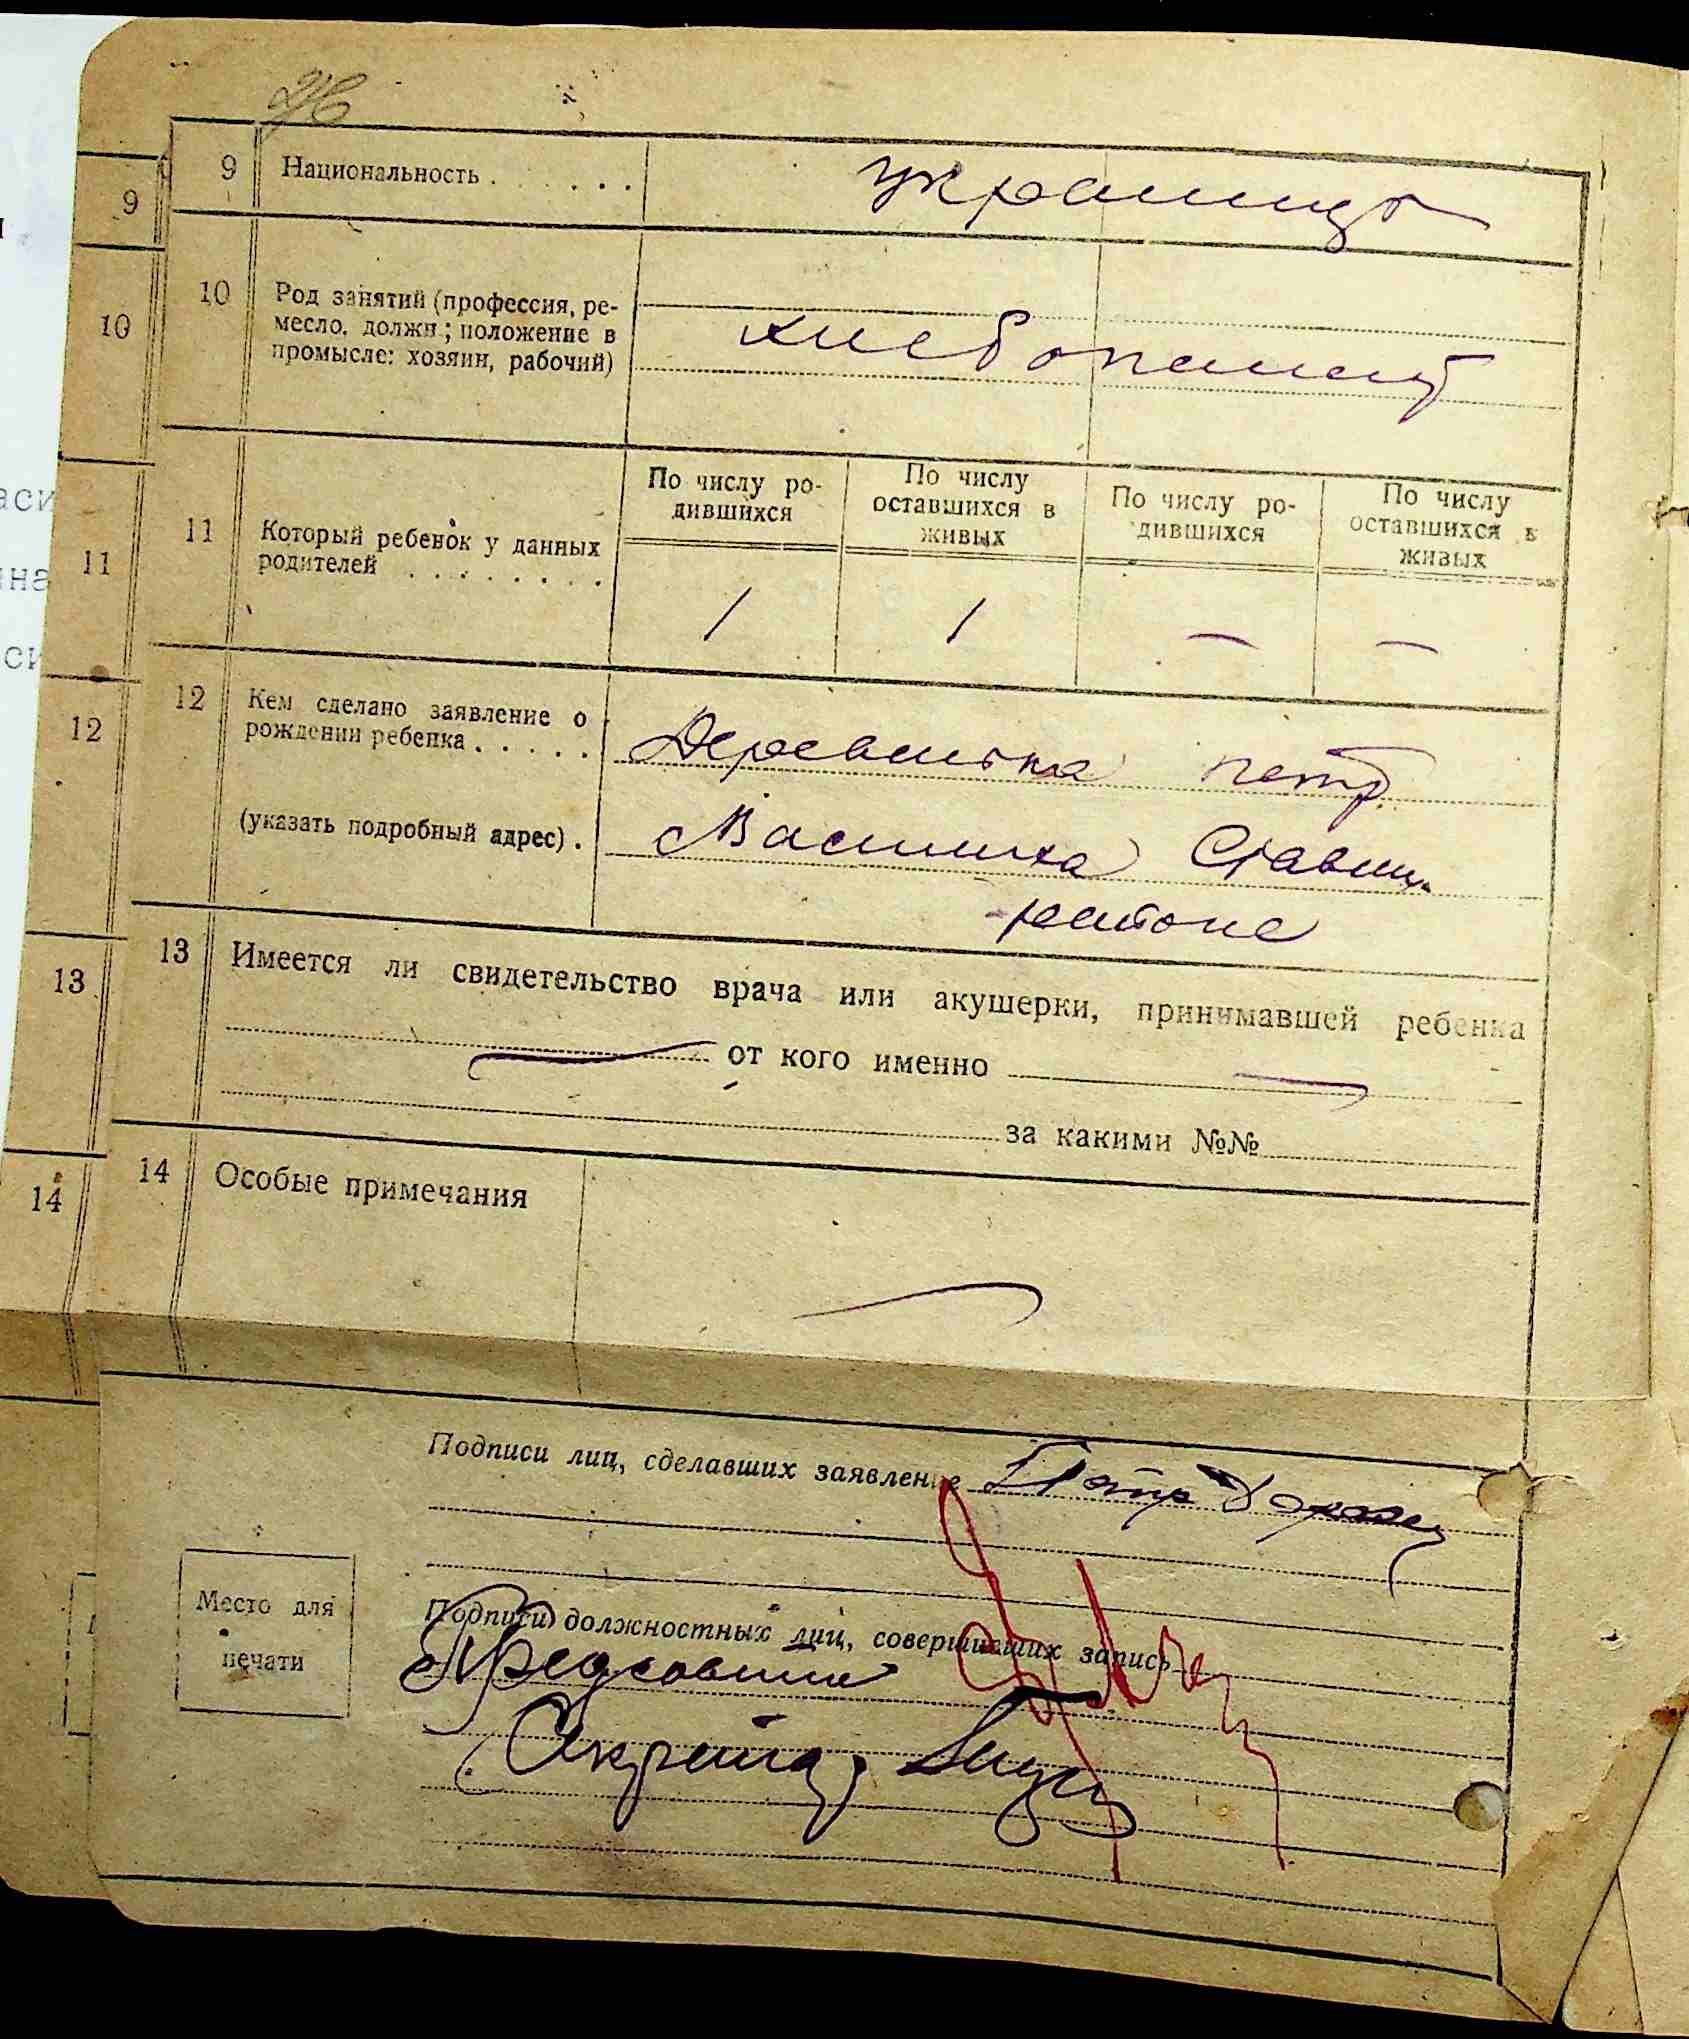 26
9 Национальность . . . . . . украинцы
9
10 Род занятий (профессия, ре-
месло. должн; положение в
промысле: хозяин, рабочий)
хлебопашец
10
По числу ро-
дившихся
По числу
оставшихся в
живых
По числу ро-
дившихся
По числу
оставшихся в
живых
11 Который ребенок у данных
родителей . . . . . . . .
1 1 — —
11
12 Кем сделано заявление о
рождении ребенка . . . . . петр
(указать подробный адрес) .
районе
12
13 Имеется ли свидетельство врача или акушерки, принимавшей ребенка
— от кого именно —
за какими №№
13
14 Особые примечания
14
Подписи лиц, сделавших заявление Петр
Место для
печати
Подписи должностных лиц, совершивших запись
аси
ина
си